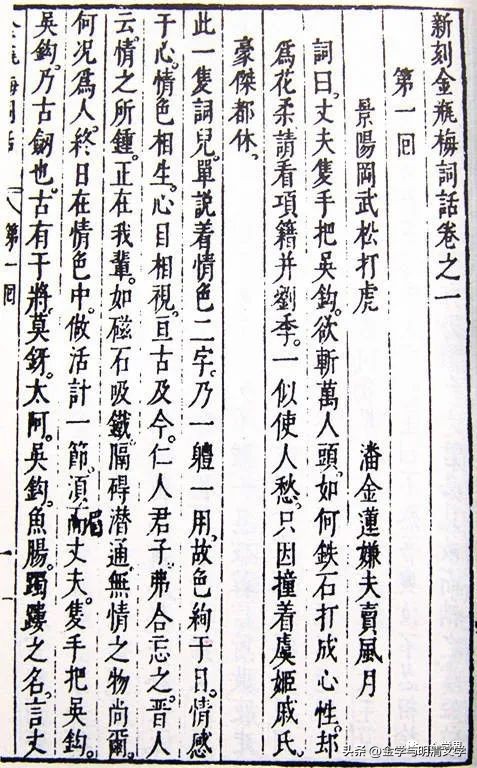 新刻金瓶梅詞話卷之一
第一回
景陽岡武松打虎　潘金蓮嫌夫賣風月
詞曰。丈夫隻手把吳鈎。欲斬萬人頭。如何鉄石打成心性却
爲花柔請看項籍并劉季。一似使人愁。只因撞着虞姬戚氏。
豪傑都休、
此一隻詞兒。單説着情色二字。乃一體一用。故色絢于目。情感
于心。情色相生。心目相視。亘古及今。仁人君子。弗合忘之。晋人
云。情之所鍾。正在我輩。如磁石吸鐵。隔碍潜通。無情之物尚爾。
何况爲人。終日在情色中。做活計一節。須眉丈夫。隻手把吳鈎。
吳鈎。乃古劒也。古有干將。莫釾。太阿。吳鈎。魚腸。躅䠱之名。言丈
第一回
一
头条 @金学与明清文学